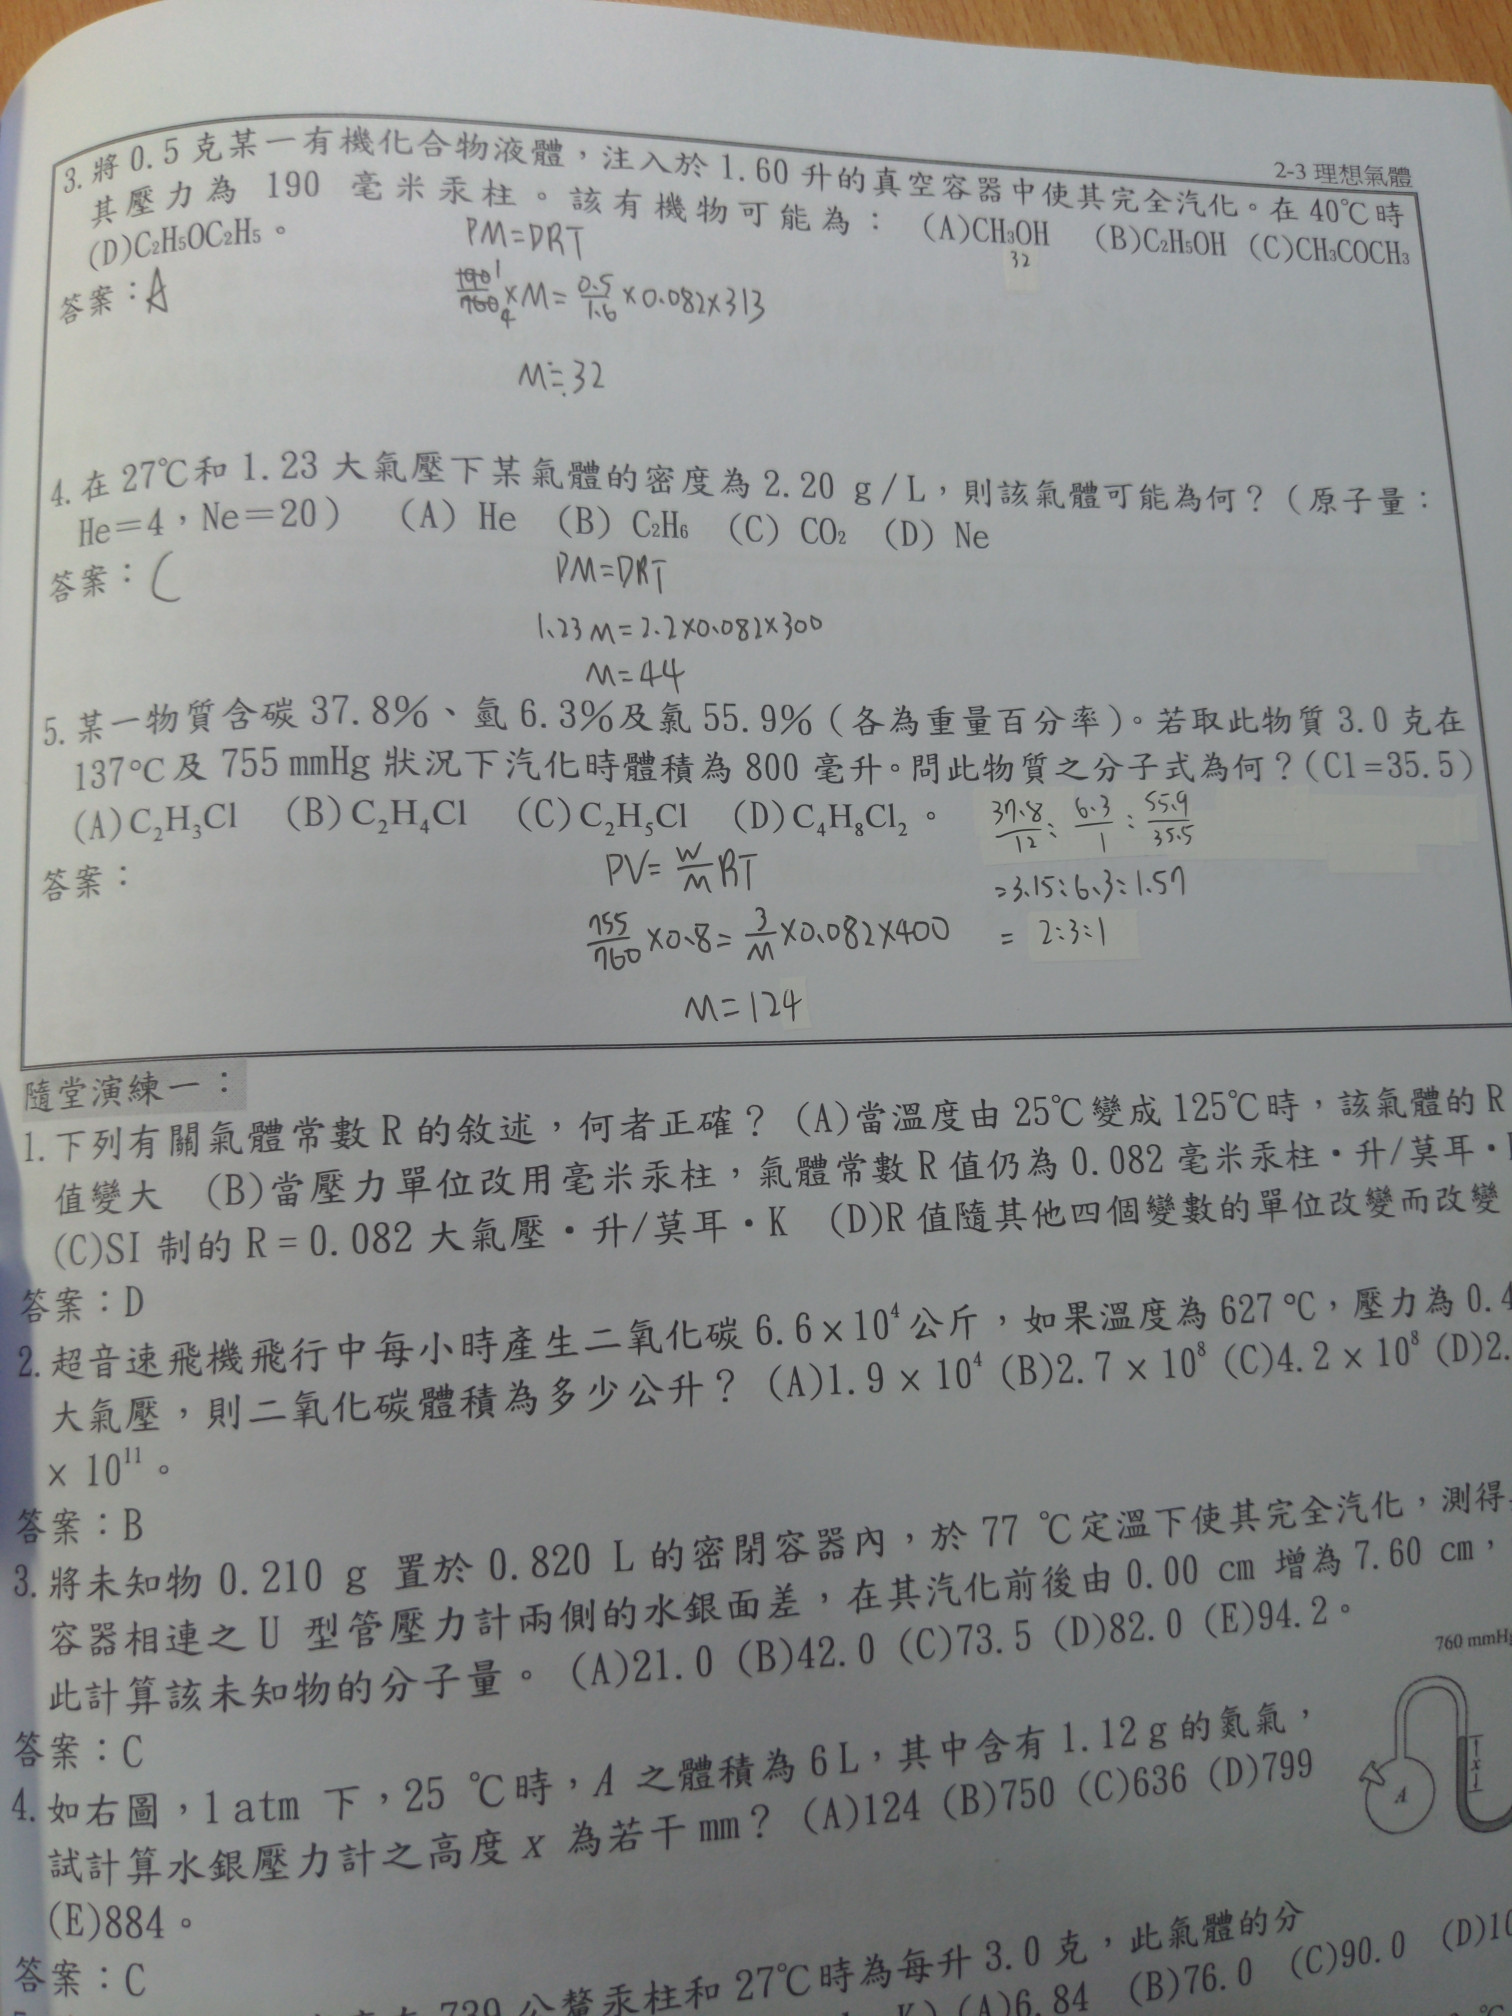 2-3 理想氣體
3. 將 0.5 克某一有機化合物液體，注入於 1.60 升的真空容器中使其完全汽化。在 40℃時
其壓力為 190 毫米汞柱。該有機物可能為： (A)CH₃OH (B)C₂H₅OH (C)CH₃COCH₃
(D)C₂H₅OC₂H₅。
32
PM=DRT
答案：A
190/760 1/4 ×M= 0.5/1.6 ×0.082×313
M≒32
4. 在 27℃和 1.23 大氣壓下某氣體的密度為 2.20 g/L，則該氣體可能為何？（原子量：
He＝4，Ne＝20） (A) He (B) C₂H₆ (C) CO₂ (D) Ne
答案：C
PM=DRT
1.23M=2.2×0.082×300
M=44
5. 某一物質含碳 37.8%、氫 6.3%及氯 55.9%（各為重量百分率）。若取此物質 3.0 克在
137℃及 755 mmHg 狀況下汽化時體積為 800 毫升。問此物質之分子式為何？(Cl=35.5)
(A)C₂H₃Cl (B)C₂H₄Cl (C)C₂H₅Cl (D)C₄H₈Cl₂。
37.8/12 : 6.3/1 : 55.9/35.5
答案：
PV= W/M RT
=3.15:6.3:1.57
755/760 ×0.8= 3/M ×0.082×400
= 2:3:1
M=124
隨堂演練一：
1. 下列有關氣體常數 R 的敘述，何者正確？ (A)當溫度由 25℃變成 125℃時，該氣體的 R
值變大 (B)當壓力單位改用毫米汞柱，氣體常數 R 值仍為 0.082 毫米汞柱・升/莫耳・
(C)SI 制的 R = 0.082 大氣壓・升/莫耳・K (D)R 值隨其他四個變數的單位改變而改變
答案：D
2. 超音速飛機飛行中每小時產生二氧化碳 6.6×10⁴公斤，如果溫度為 627℃，壓力為 0.4
大氣壓，則二氧化碳體積為多少公升？ (A)1.9 × 10⁴ (B)2.7 × 10⁸ (C)4.2 × 10⁸ (D)2.
× 10¹¹。
答案：B
3. 將未知物 0.210 g 置於 0.820 L 的密閉容器內，於 77 ℃定溫下使其完全汽化，測得
容器相連之 U 型管壓力計兩側的水銀面差，在其汽化前後由 0.00 cm 增為 7.60 cm，
此計算該未知物的分子量。 (A)21.0 (B)42.0 (C)73.5 (D)82.0 (E)94.2。
答案：C
760 mmHg
4. 如右圖，1 atm 下，25 ℃時，A 之體積為 6 L，其中含有 1.12 g 的氮氣，
試計算水銀壓力計之高度 x 為若干 mm？ (A)124 (B)750 (C)636 (D)799
(E)884。
x
A
答案：C
739 公釐汞柱和 27℃時為每升 3.0 克，此氣體的分
(A)6.84 (B)76.0 (C)90.0 (D)10